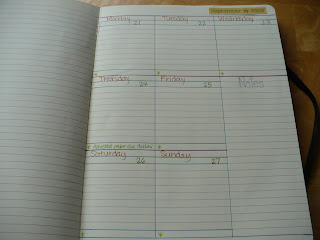 September
Monday 21
Tuesday 22
Wednesday 23
Thursday 24
Friday 25
Notes
Saturday 26
Sunday 27